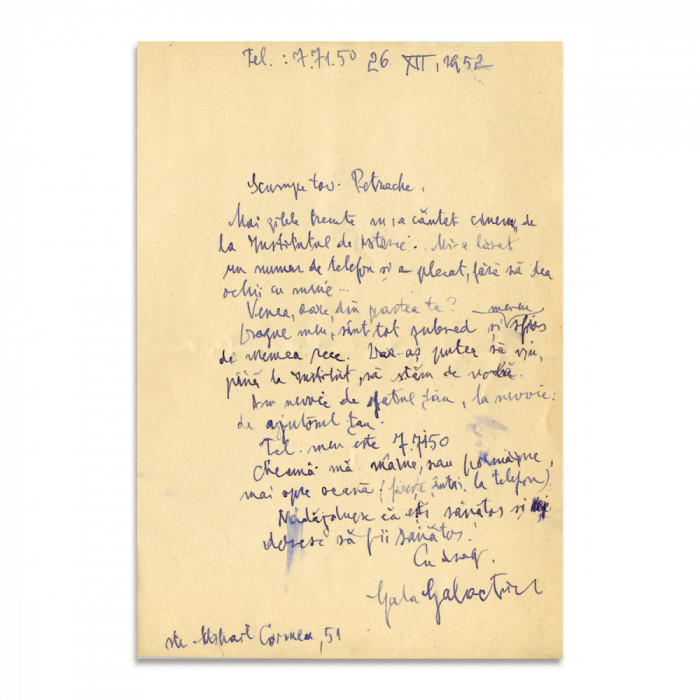 Tel. : 7.71.50 26 XII, 1952
Scumpe tov. Petrache,
Mai zilele trecute m-a căutat cineva, de
la Institutul de istorie... Mi-a lăsat
un număr de telefon și a plecat, fără să dea
ochii cu mine...
Venea, oare, din partea ta?
Dragul meu, sînt tot șubred și mereu
de vremea rece. Dar aș putea să viu,
pînă la Institut, să stăm de vorbă.
Am nevoie de sfatul tău, la nevoie:
de ajutorul tău.
Tel. meu este 7.7150
Cheamă-mă mîine, sau poimîine,
mai spre seară (firește, întîi, la telefon)
Nădăjduesc că ești sănătos și îți
doresc să fii sănătos!
Cu drag,
Gala Galaction
str. Mihail Cornea, 51